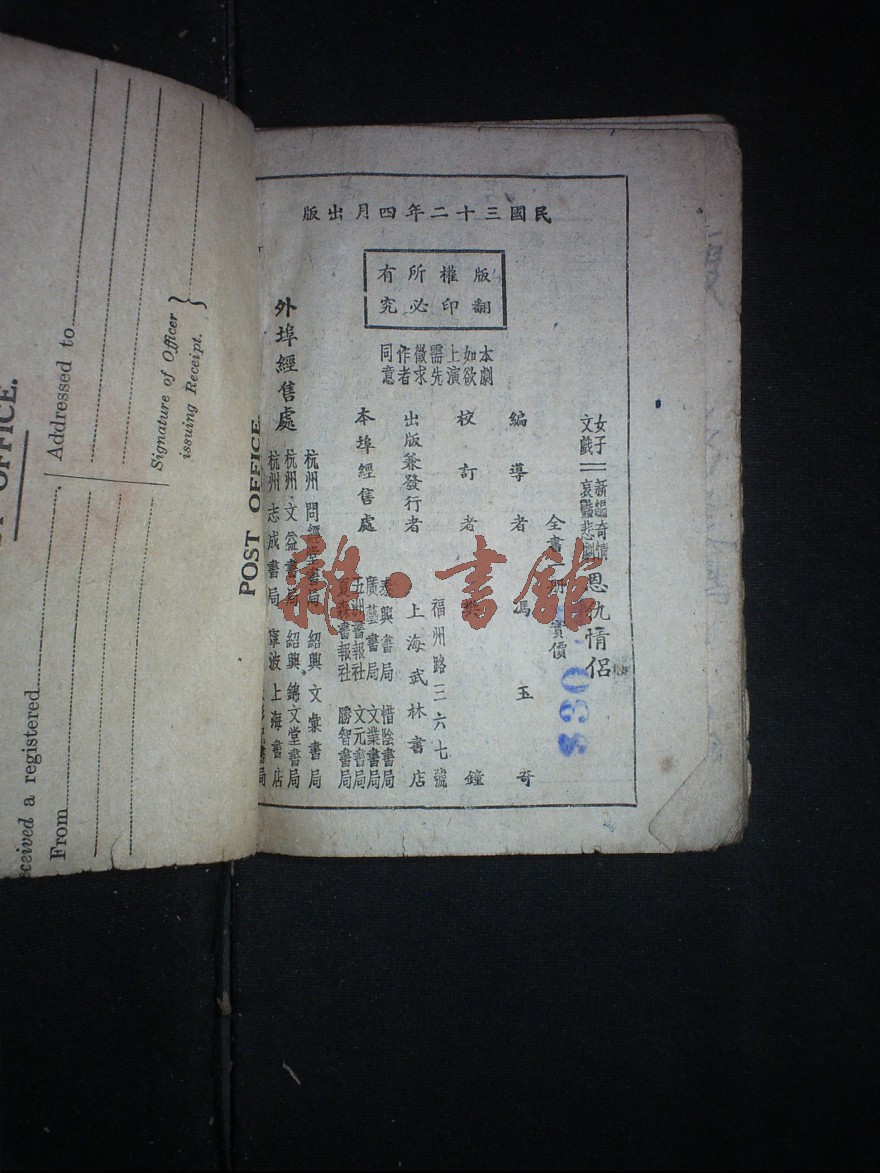 民國三十二年四月出版
版權所有
翻印必究
本劇
如欲
上演
需先
徵求
作者
同意
女子文戲
新編奇情
哀豔悲劇
恩仇情侶
全書一冊 實價
330
編導者 馮玉奇
校訂者 樊 鐘
出版兼發行者 上海武林書店
福州路三六七號
本埠經售處
泰興書局 惜陰書局
廣藝書局 文業書局
五洲書報社 文元書局
夏森書報社 勝智書局
外埠經售處
杭州 問經堂書局 紹興 文棠書局
杭州 文益書局 紹興 錦文堂書局
杭州 志成書局 寧波 上海書店
書局
雜·書館
POST OFFICE
OFFICE.
Addressed to
Signature of Officer
issuing Receipt.
a registered
From